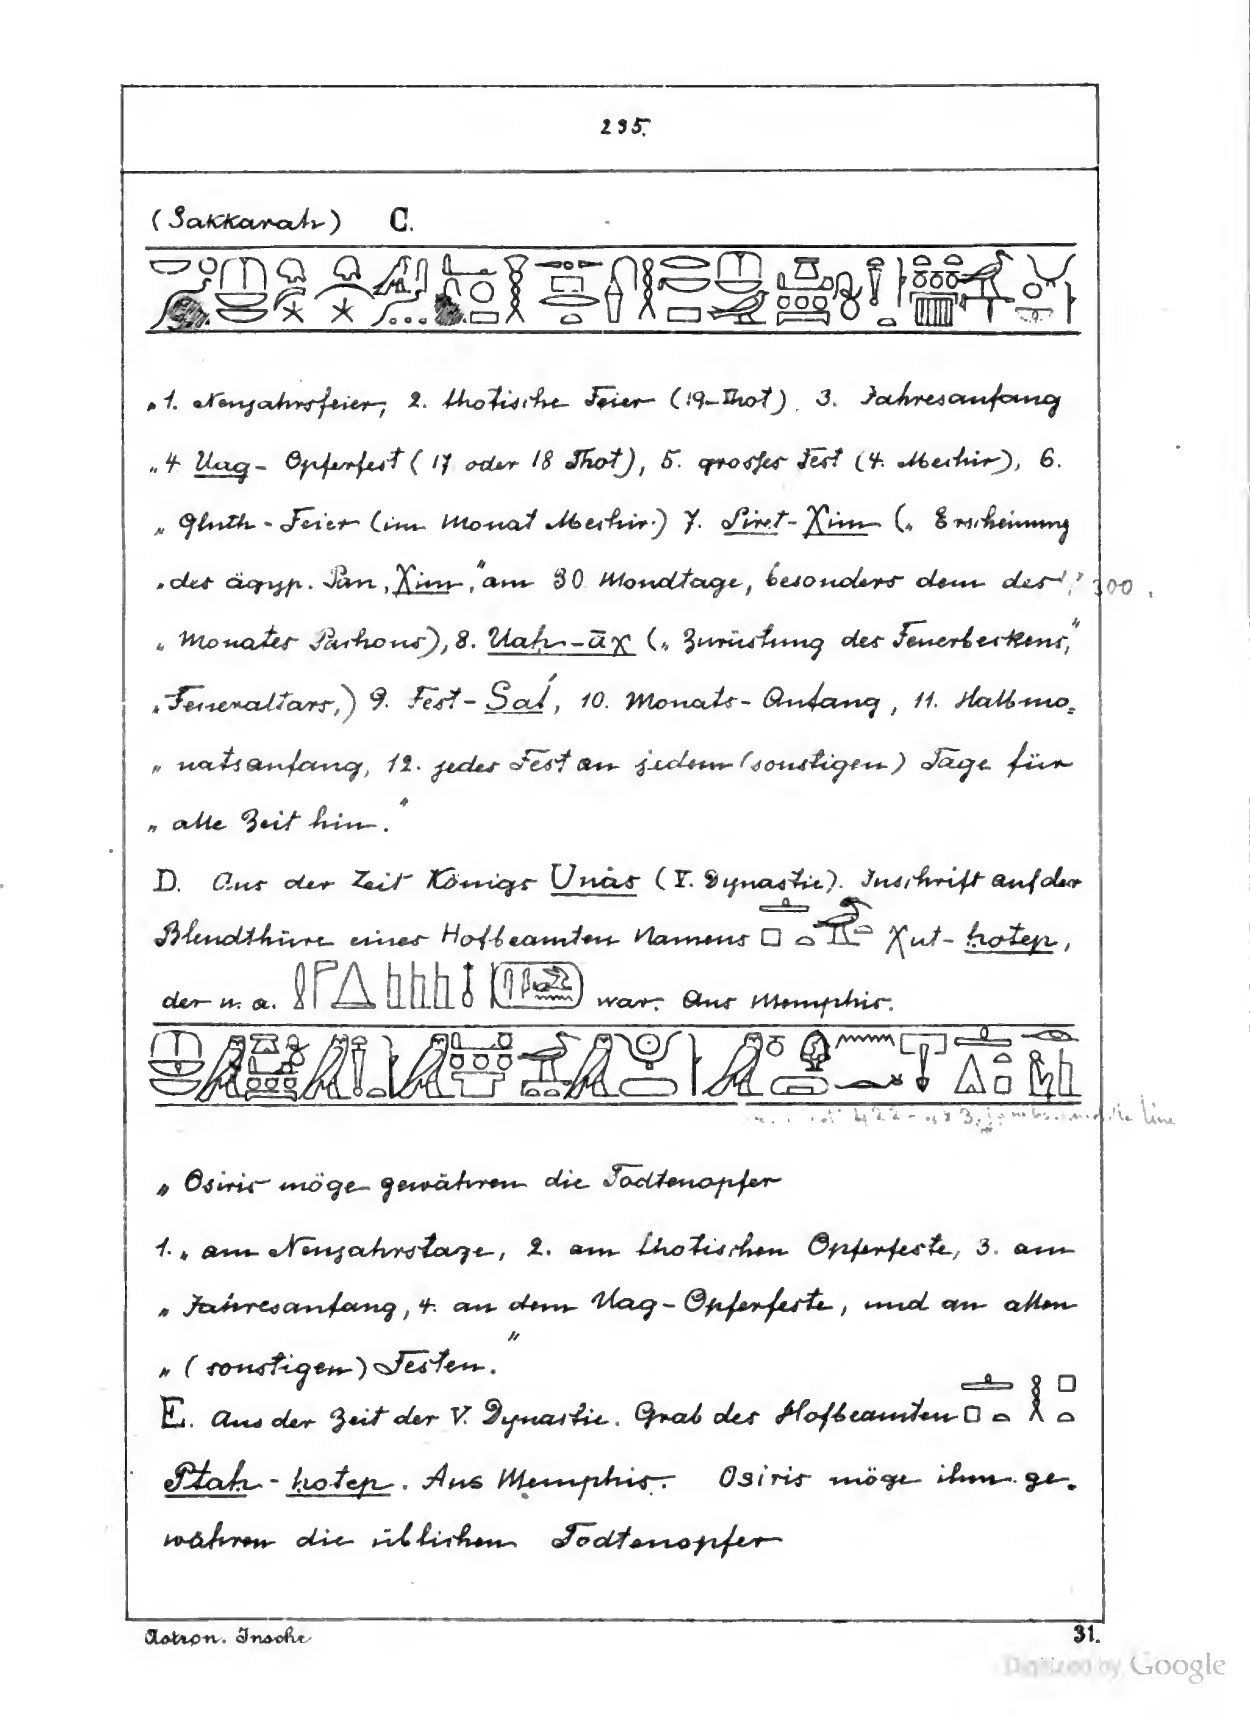 235.
(Sakkarah) C.
„1. Neujahrsfeier, 2. thotische Feier (19. Thot). 3. Jahresanfang
„4 Uag - Opferfest (17 oder 18 Thot), 5. grosses Fest (4. Mechir), 6.
„Gluth - Feier (im Monat Mechir.) 7. Siret-Xim („Erscheinung
„des ägyp. Pan, Xim," am 30. Mondtage, besonders dem des
„Monates Pachons), 8. Uah-āχ („Zurüstung des Feuerbeckens,"
„Feueraltars,) 9. Fest - Saí, 10. Monats-Anfang, 11. Halbmo=
„natsanfang, 12. jedes Fest an jedem (sonstigen) Tage für
„alle Zeit hin."
D. Aus der Zeit Königs Unàs (V. Dynastie). Inschrift auf der
Blendthüre eines Hofbeamten Namens Xut-hotep,
der u. a. war. Aus Memphis.
„Osiris möge gewähren die Todtenopfer
1. „am Neujahrstage, 2. am thotischen Opferfeste, 3. am
„Jahresanfang, 4. an dem Uag-Opferfeste, und an allen
„(sonstigen) Festen."
E. Aus der Zeit der V. Dynastie. Grab des Hofbeamten
Ptah-hotep. Aus Memphis. Osiris möge ihm ge-
währen die üblichen Todtenopfer
Astron. Inschr. 31.
Digitized by Google